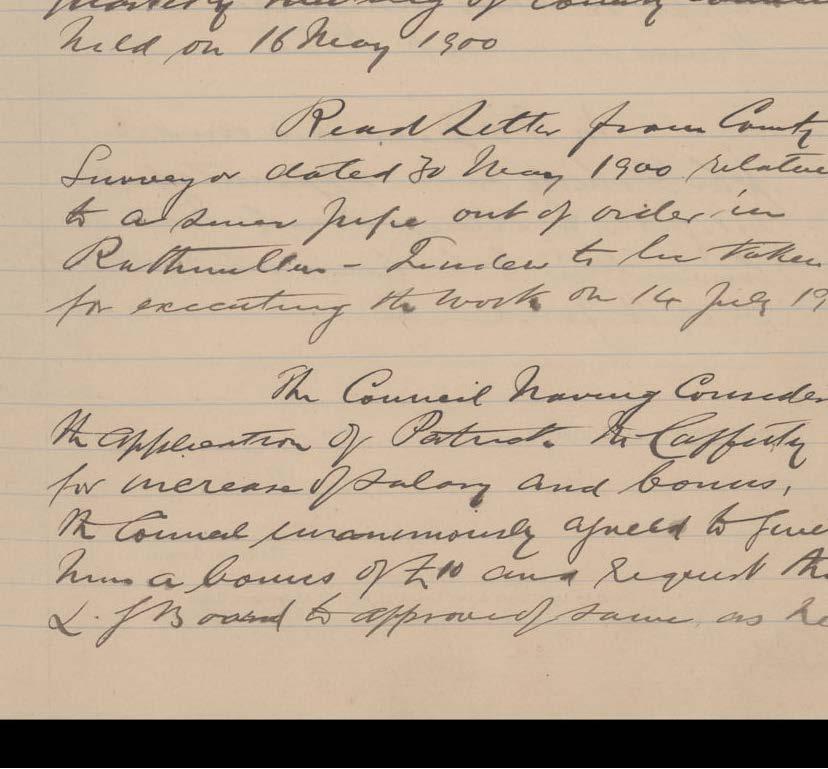 Quarterly Meeting of County Council
held on 16 May 1900
Read Letter from County
Surveyor dated 30 May 1900 relative
to a sewer pipe out of order in
Rathmullen - Tender to be taken
for executing the work on 14 July 19
The Council having Consider
the application of Patrick McCafferty
for increase of salary and bonus,
the Council unanimously agreed to give
him a bonus of £10 and request the
L. G Board to approve of same, as he